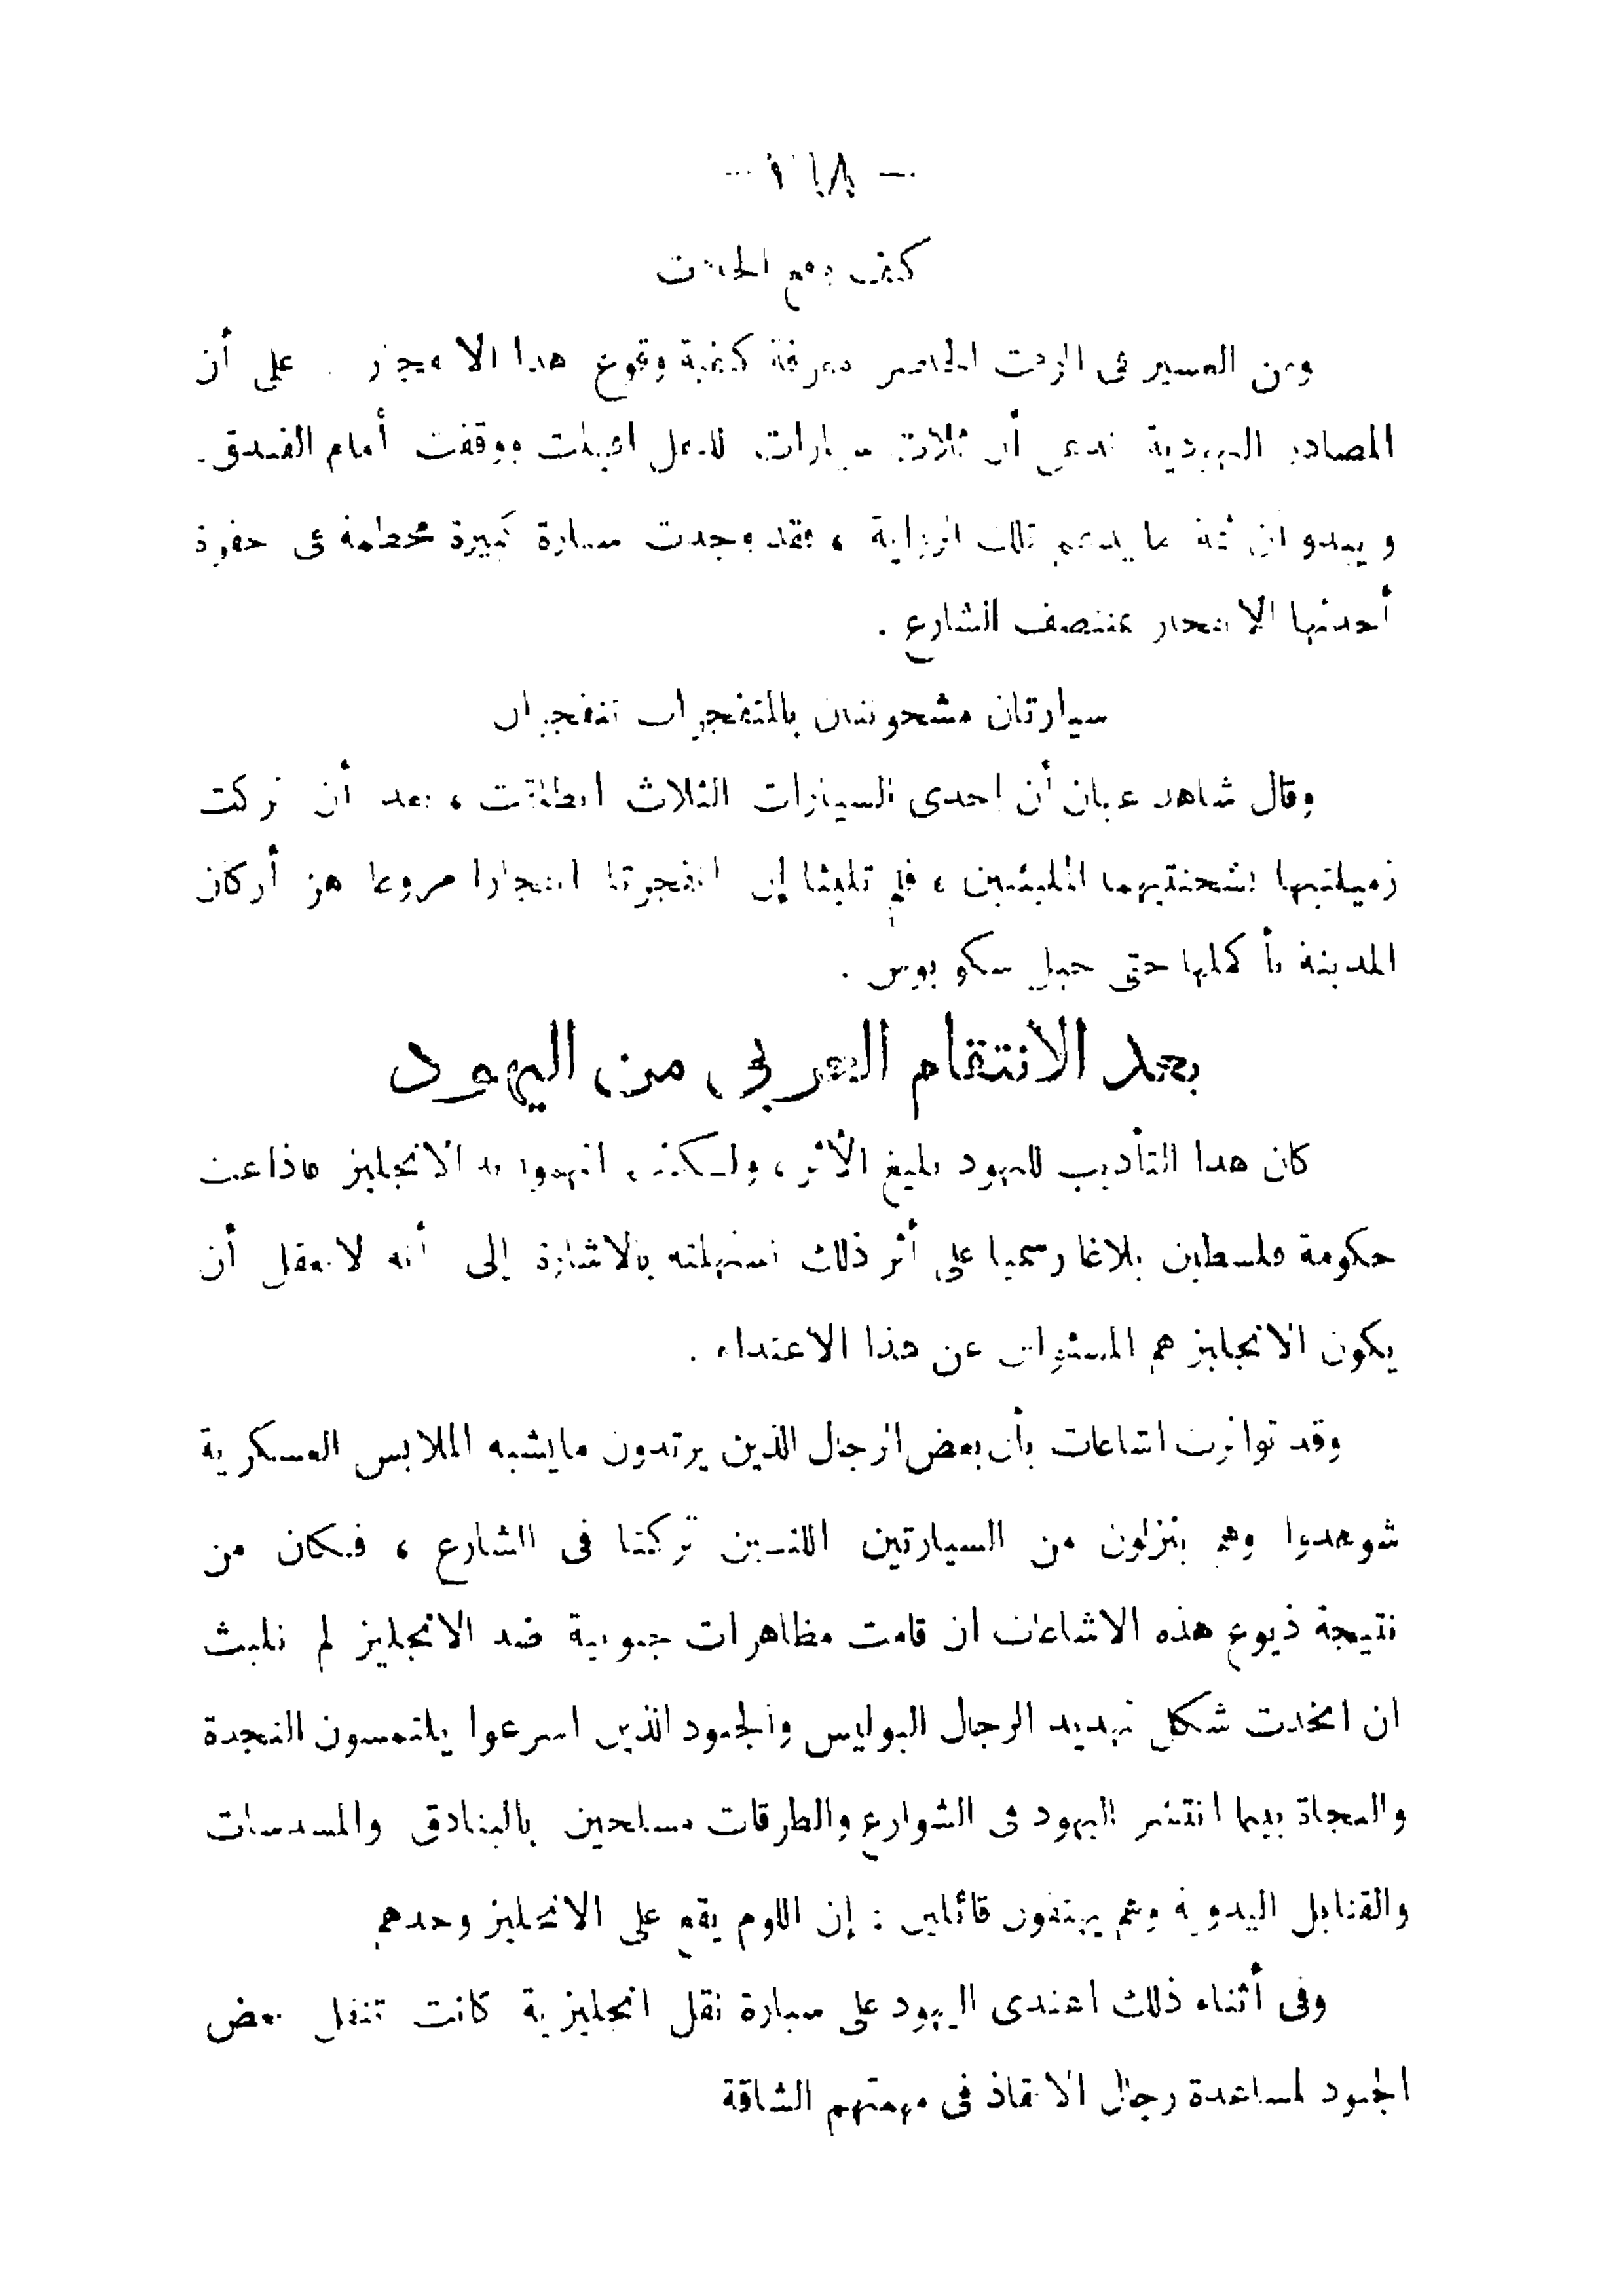 كيف وقع الحادث
ومن العسير فى الوقت الحاضر معرفة كيفية وقوع هذا الانفجار . على أن
المصادر اليهودية تدعى أن ثلاث سيارات للنقل اقبلت ووقفت أمام الفندق .
ويبدو ان ثمة ما يدعم تلك الرواية ، فقد وجدت سيارة كبيرة محطمة فى حفرة
أحدثها الانفجار بمنتصف الشارع .
سيارتان مشحونتان بالمتفجرات تنفجران
وقال شاهد عيان أن إحدى السيارات الثلاث انطلقت ، بعد أن تركت
زميلتيها بشحنتيهما المليئتين ، فلم تلبثا إن انفجرتا انفجارا مروعا هز أركان
المدينة بأكملها حتى جبل سكوبوس .
بعد الانتقام العربى من اليهود
كان هذا التأديب لليهود بليغ الأثر ، ولكنهم اتهموا به الانجليز فاذاعت
حكومة فلسطين بلاغا رسميا على أثر ذلك استهلته بالاشارة إلى أنه لا يعقل أن
يكون الانجليز هم المسئولين عن هذا الاعتداء .
وقد تواترت اشاعات بأن بعض الرجال الذين يرتدون مايشبه الملابس العسكرية
شوهدوا وهم ينزلون من السيارتين اللتين تركتا فى الشارع ، فكان من
نتيجة ذيوع هذه الاشاعات ان قامت مظاهرات جنونية ضد الانجليز لم تلبث
ان اتخذت شكل تهديد الرجال البوليس والجنود الذين اسرعوا يلتمسون النجدة
والنجاة بينما انتشر اليهود فى الشوارع والطرقات مسلحين بالبنادق والمسدسات
والقنابل اليدوية وهم يهتفون قائلين : إن اللوم يقع على الانجليز وحدهم
وفى أثناء ذلك اعتدى اليهود على سيارة نقل انجليزية كانت تنقل بعض
الجنود لمساعدة رجال الانقاذ فى مهمتهم الشاقة